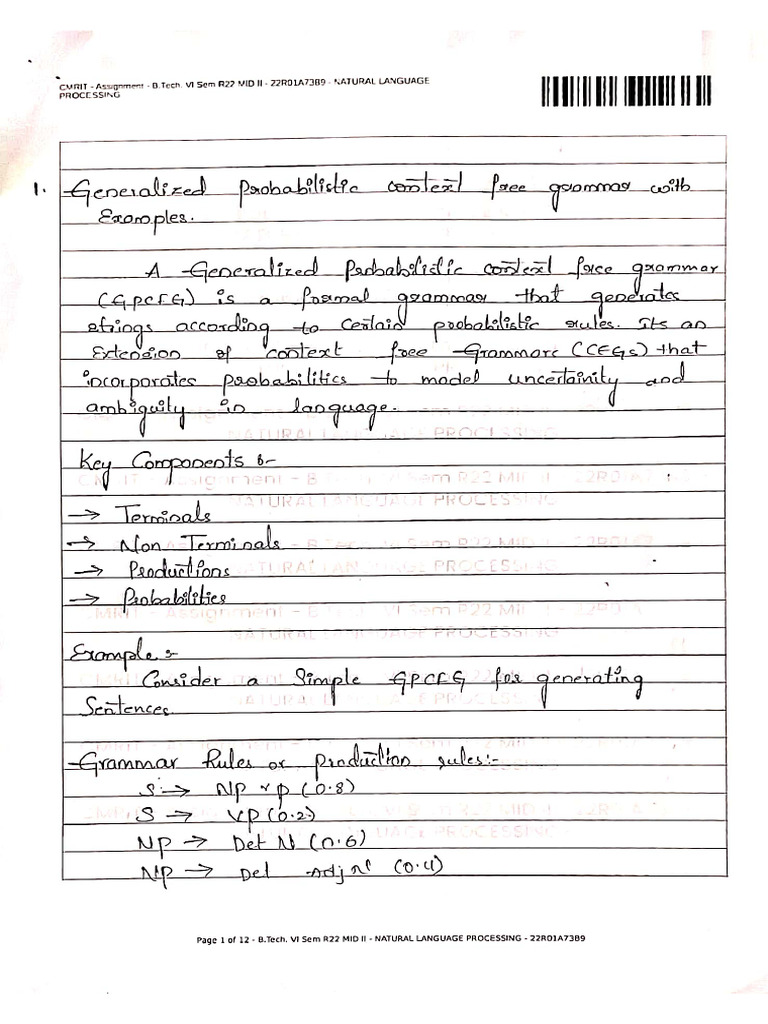 CMRIT - Assignment - B.Tech. VI Sem R22 MID II - 22R01A73B9 - NATURAL LANGUAGE
PROCESSING
1. Generalized Probabilistic context free grammar with
Examples.
A Generalized Probabilistic context free grammar
(GPCFG) is a formal grammar that generates
strings according to certain probabilistic rules. Its an
Extension of context free Grammars (CFGs) that
incorporates probabilities to model uncertainity and
ambiguity in language.
Key Components :-
→ Terminals
→ Non Terminals
→ Productions
→ Probabilities
Example :-
Consider a Simple GPCFG for generating
Sentences.
Grammar Rules or production rules:-
S → NP VP (0.8)
S → VP (0.2)
NP → Det N (0.6)
NP → Det Adj N (0.4)
Page 1 of 12 - B.Tech. VI Sem R22 MID II - NATURAL LANGUAGE PROCESSING - 22R01A73B9